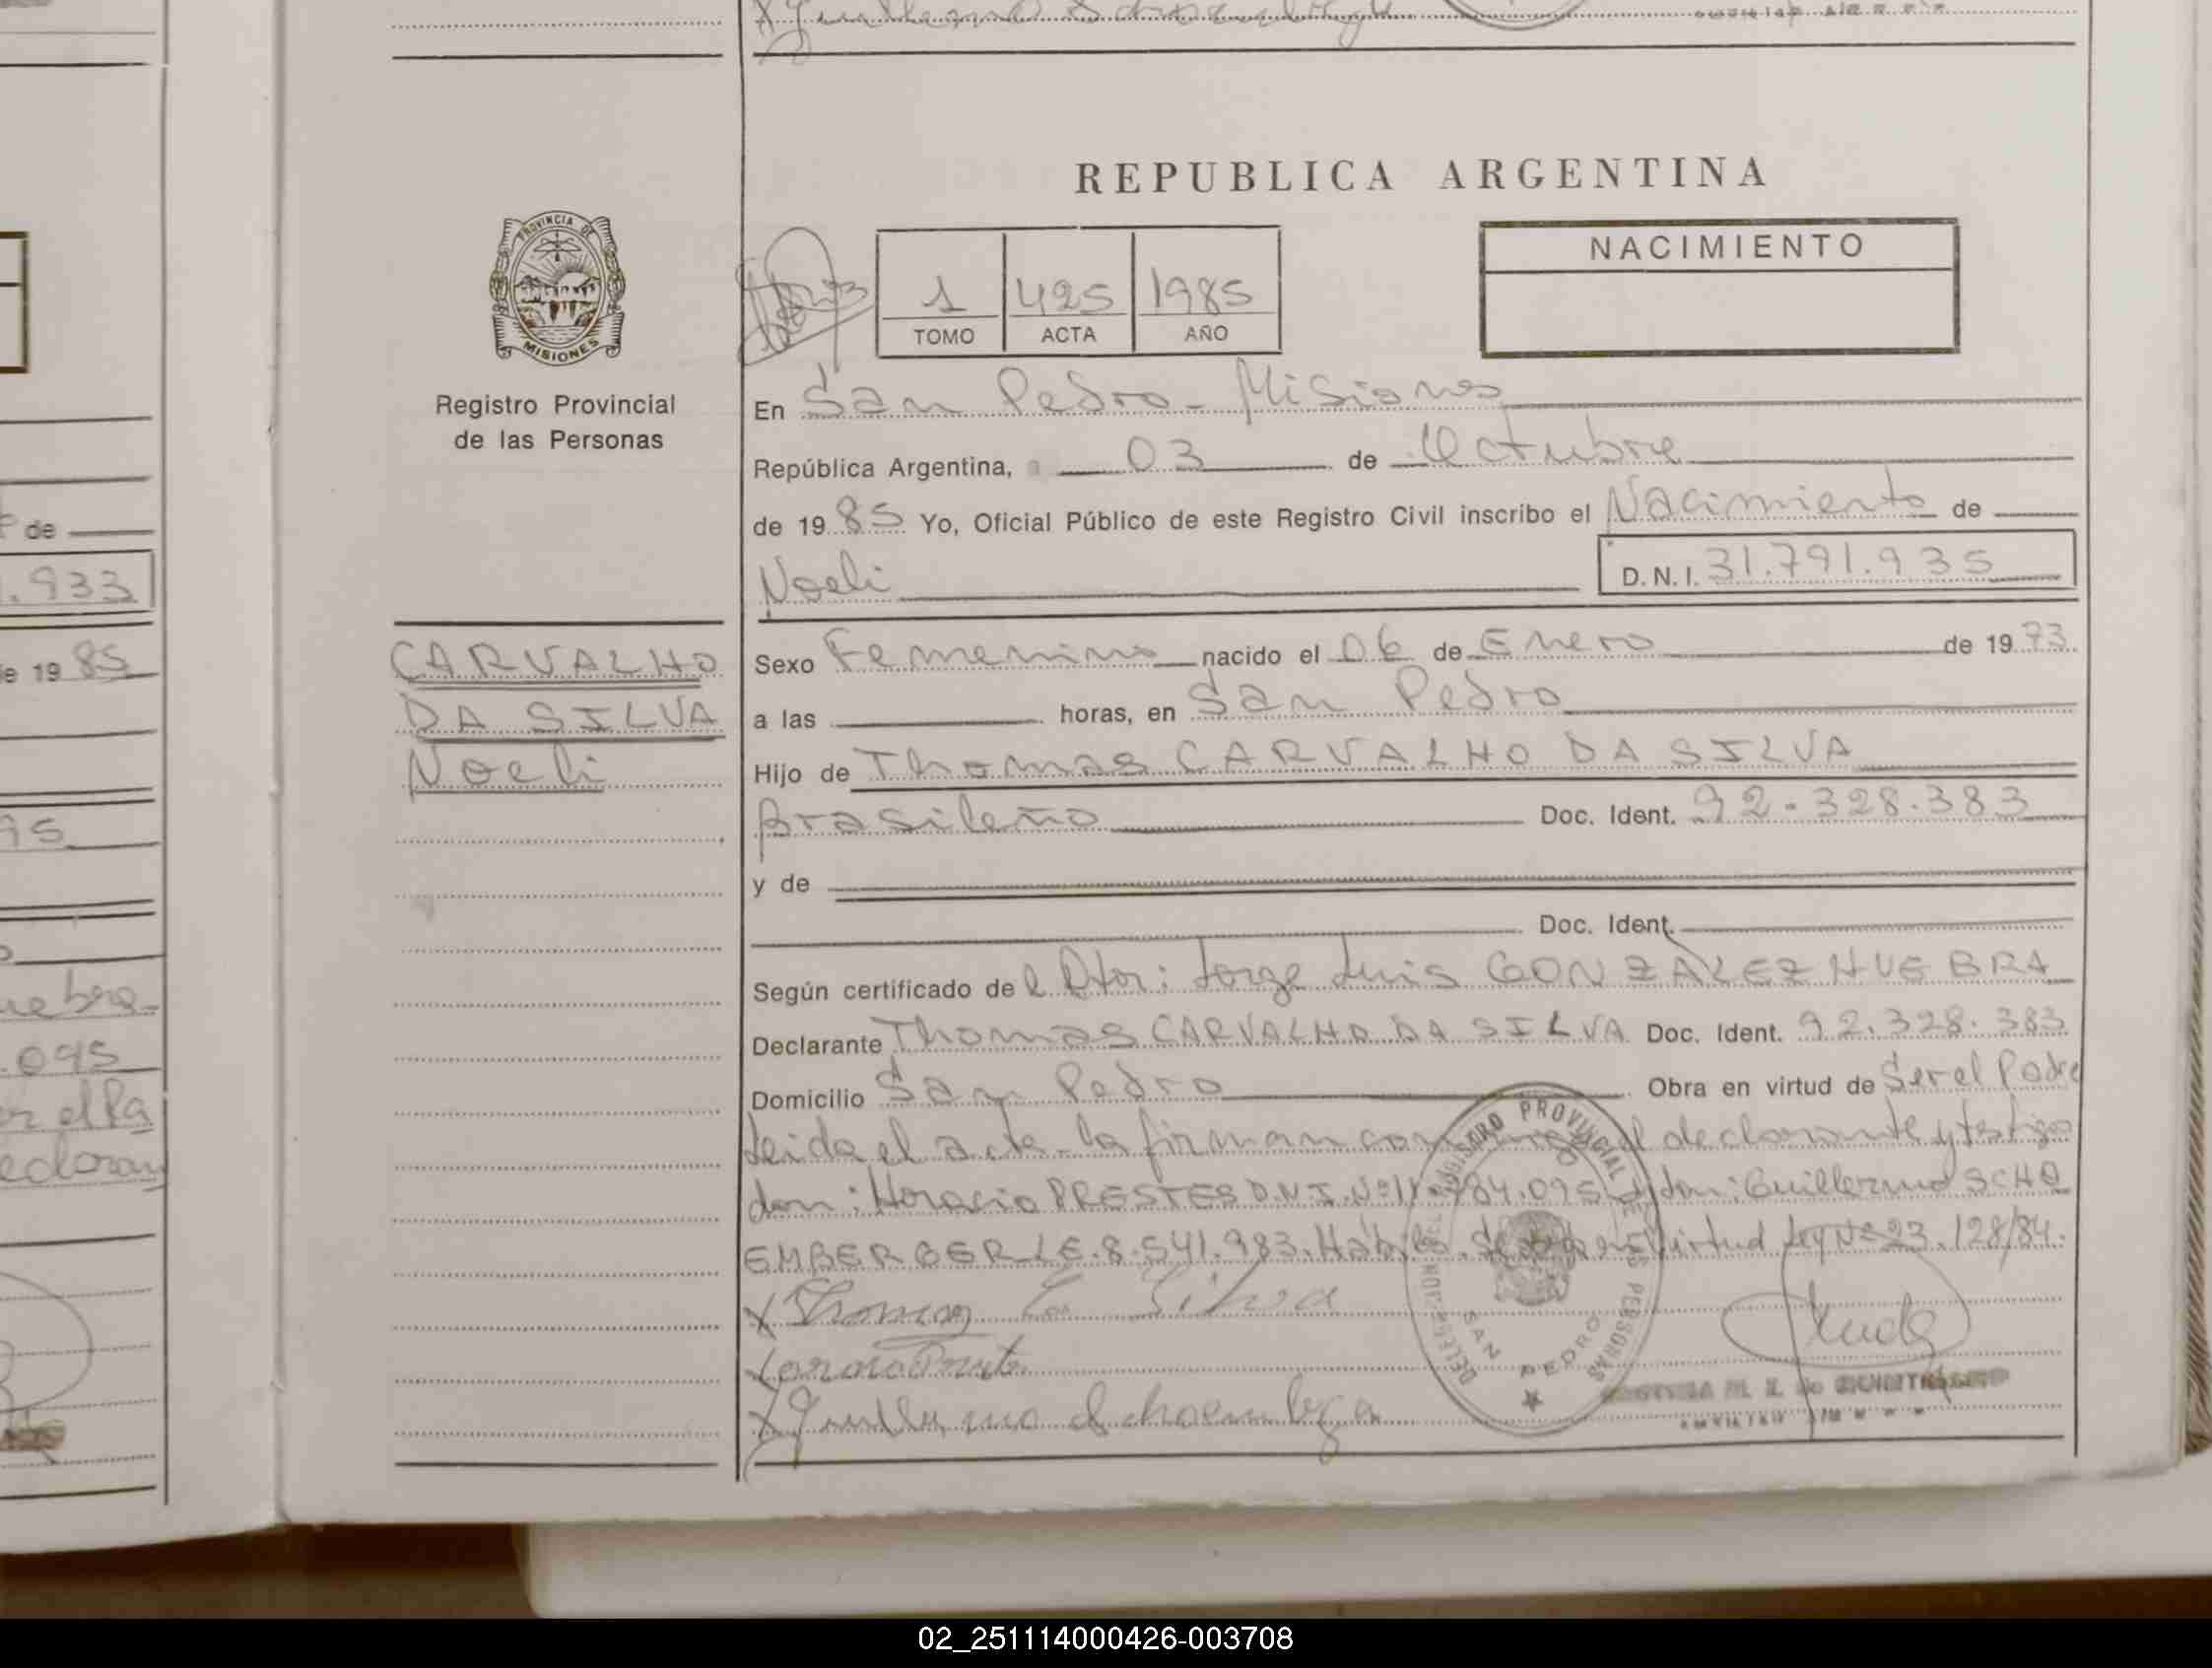 REPUBLICA ARGENTINA
PROVINCIA DE
MISIONES
Registro Provincial
de las Personas
1 425 1985
TOMO ACTA AÑO
NACIMIENTO
En San Pedro - Misiones
República Argentina, a 03 de Octubre
de 1985 Yo, Oficial Público de este Registro Civil inscribo el Nacimiento de
Noeli D.N.I. 31.791.935
CARVALHO
DA SILVA
Noeli
Sexo Femenino nacido el 06 de Enero de 1973
a las horas, en San Pedro
Hijo de Thomas CARVALHO DA SILVA
Brasileño Doc. Ident. 92.328.383
y de
Doc. Ident.
Según certificado de l Dtor: Jorge Luis GONZALEZ HUEBRA
Declarante Thomas CARVALHO DA SILVA Doc. Ident. 92.328.383
Domicilio San Pedro Obra en virtud de Ser el Padre
Leida el acta la firman conmigo el declarante y testigo
don: Horacio PRESTES D.N.I. Nº 11.784.095 y don: Guillermo SCHO
EMBERGER L.E. 8.541.983. Habiles. Virtud Ley Nº 23.128/84.
REGISTRO PROVINCIAL DE LAS PERSONAS
SAN PEDRO
.933
de
e 19 85
95
uebra-
.095
er el Pa
eclaran
02_251114000426-003708